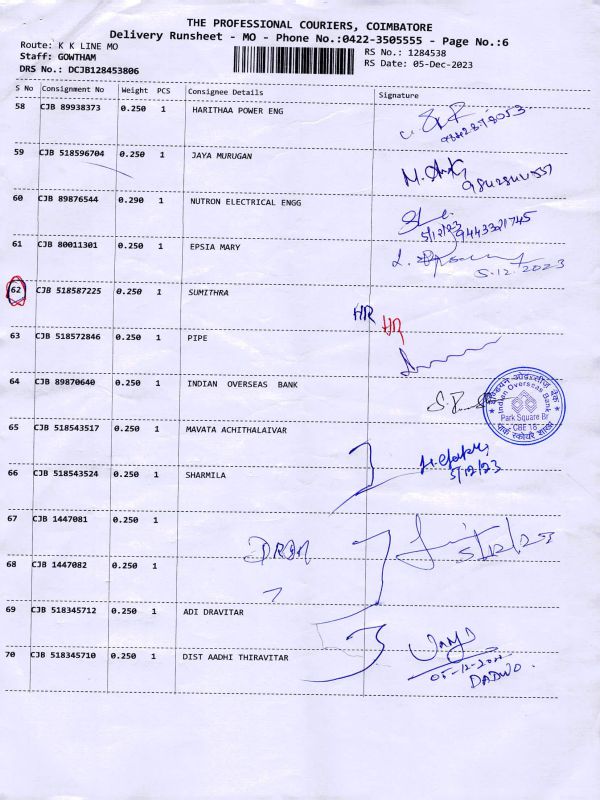 THE PROFESSIONAL COURIERS, COIMBATORE
Delivery Runsheet - MO - Phone No.:0422-3505555 - Page No.:6
Route: K K LINE MO
RS No.: 1284538
Staff: GOWTHAM
RS Date: 05-Dec-2023
DRS No.: DCJB128453806
S No Consignment No Weight PCS Consignee Details Signature
58 CJB 89938373 0.250 1 HARITHAA POWER ENG
59 CJB 518596704 0.250 1 JAYA MURUGAN
60 CJB 89876544 0.290 1 NUTRON ELECTRICAL ENGG
5/12/23 9443321745
61 CJB 80011301 0.250 1 EPSIA MARY
5.12.2023
62 CJB 518587225 0.250 1 SUMITHRA
HR HR
63 CJB 518572846 0.250 1 PIPE
64 CJB 89870640 0.250 1 INDIAN OVERSEAS BANK
इण्डियन ओवरसीज़ बैंक
Indian Overseas Bank
Park Square Br
CBE 18
पार्क स्कोयर शाखा
65 CJB 518543517 0.250 1 MAVATA ACHITHALAIVAR
5/12/23
66 CJB 518543524 0.250 1 SHARMILA
67 CJB 1447081 0.250 1
5/12/23
68 CJB 1447082 0.250 1
69 CJB 518345712 0.250 1 ADI DRAVITAR
70 CJB 518345710 0.250 1 DIST AADHI THIRAVITAR
DADWO.